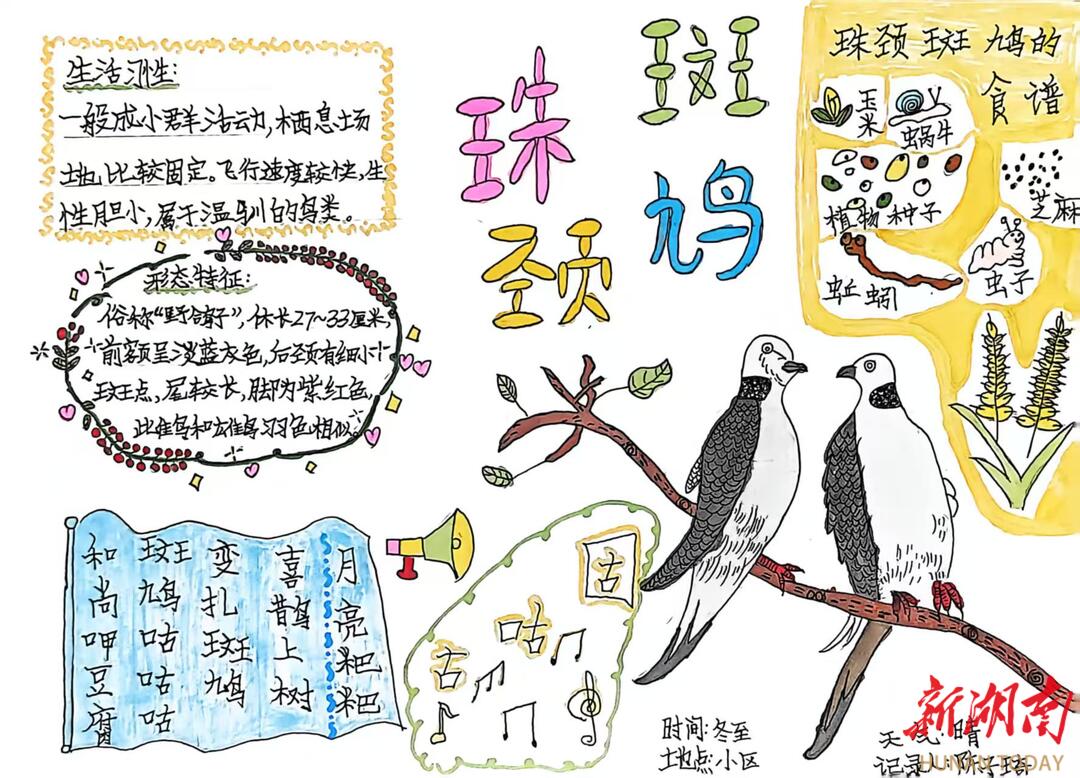 珠颈
斑鸠
生活习性:
一般成小群活动,栖息场
地比较固定。飞行速度较快,生
性胆小,属于温驯的鸟类。
形态特征:
俗称“野鸽子”,体长27~33厘米,
前额呈淡蓝灰色,后颈有细小
斑点,尾较长,脚为紫红色,
雌鸟和雄鸟羽色相似。
珠颈斑鸠的
食谱
玉米
蜗牛
植物种子
芝麻
蚯蚓
虫子
月亮粑粑
喜鹊上树
变扎斑鸠
斑鸠咕咕咕
和尚呷豆腐
固
咕
古
时间:冬至
地点:小区
天气:晴
记录:陈
新湖南
HUNAN TODAY